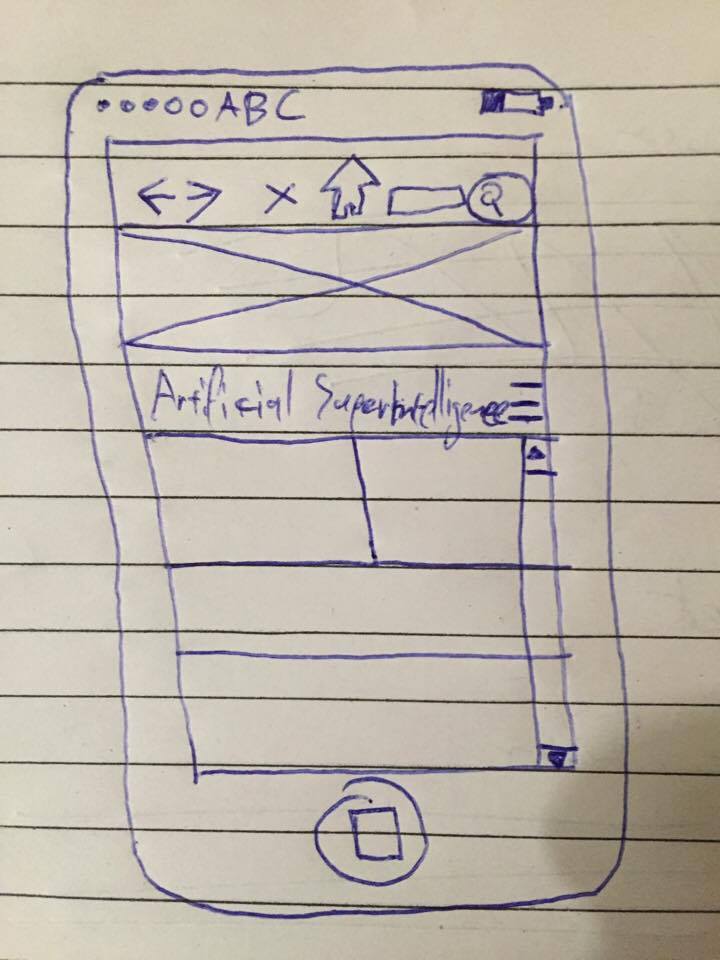 ABC
Artificial Superintelligence